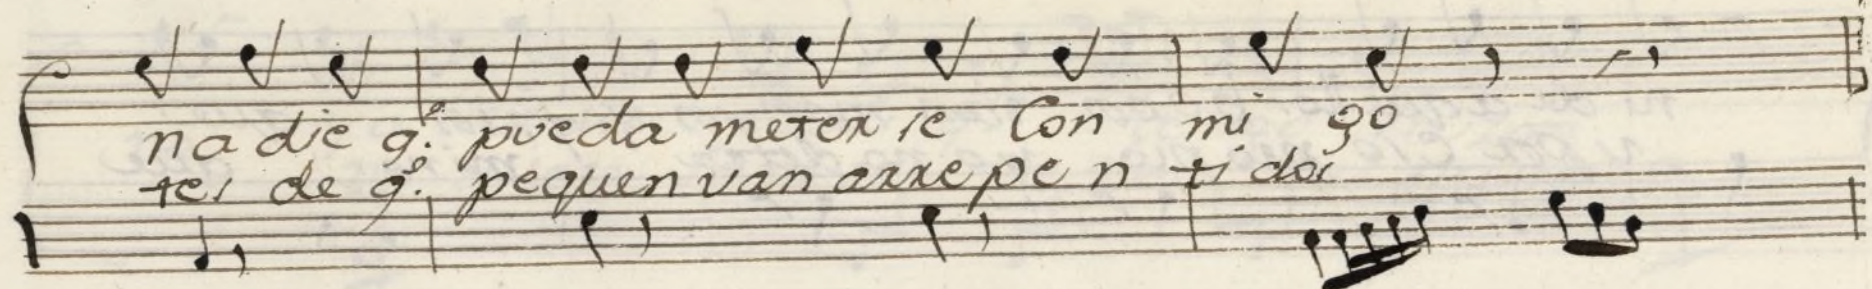 na die q.e pueda meter se Con mi go
tes de q.e pequen van arre pe n ti dos